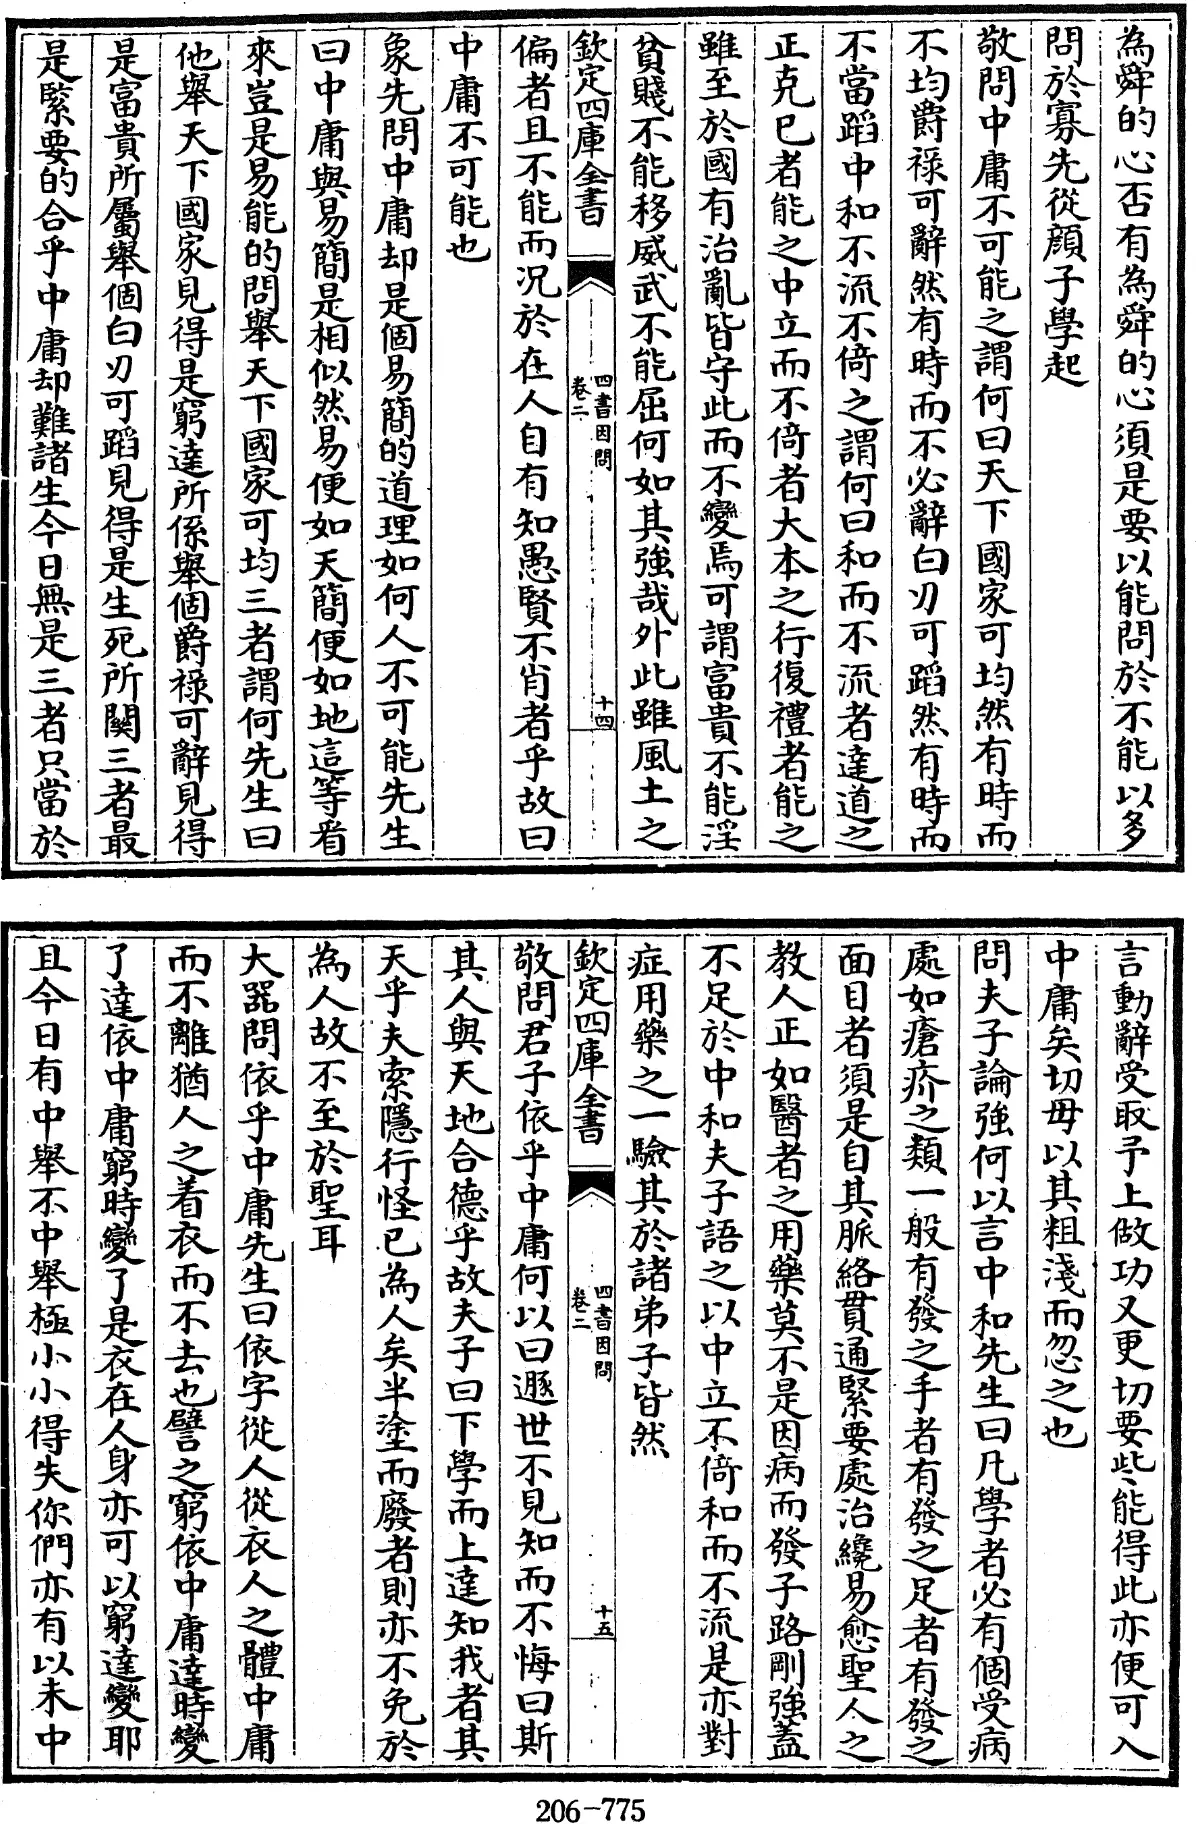 為舜的心否有為舜的心須是要以能問於不能以多
問於寡先從顔子學起
敬問中庸不可能之謂何曰天下國家可均然有時而
不均爵祿可辭然有時而不必辭白刃可蹈然有時而
不當蹈中和不流不倚之謂何曰和而不流者達道之
正克已者能之中立而不倚者大本之行復禮者能之
雖至於國有治亂皆守此而不變焉可謂富貴不能淫
貧賤不能移威武不能屈何如其強哉外此雖風土之
欽定四庫全書
四書因問
卷二
十四
偏者且不能而况於在人自有知愚賢不肖者乎故曰
中庸不可能也
象先問中庸却是個易簡的道理如何人不可能先生
曰中庸與易簡是相似然易便如天簡便如地這等看
來豈是易能的問舉天下國家可均三者謂何先生曰
他舉天下國家見得是窮達所係舉個爵祿可辭見得
是富貴所屬舉個白刃可蹈見得是生死所關三者最
是緊要的合乎中庸却難諸生今日無是三者只當於
言動辭受取予上做功又更切要些能得此亦便可入
中庸矣切毋以其粗淺而忽之也
問夫子論強何以言中和先生曰凡學者必有個受病
處如瘡疥之類一般有發之手者有發之足者有發之
面目者須是自其脈絡貫通緊要處治纔易愈聖人之
教人正如醫者之用藥莫不是因病而發子路剛強蓋
不足於中和夫子語之以中立不倚和而不流是亦對
症用藥之一驗其於諸弟子皆然
欽定四庫全書
四書因問
卷二
十五
敬問君子依乎中庸何以曰遯世不見知而不悔曰斯
其人與天地合德乎故夫子曰下學而上達知我者其
天乎夫索隱行怪已為人矣半塗而廢者則亦不免於
為人故不至於聖耳
大器問依乎中庸先生曰依字從人從衣人之體中庸
而不離猶人之着衣而不去也譬之窮依中庸達時變
了達依中庸窮時變了是衣在人身亦可以窮達變耶
且今日有中舉不中舉極小小得失你們亦有以未中
206-775